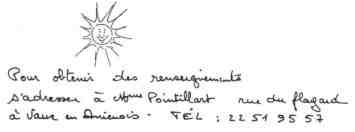 Pour obtenir des renseignements
s'adresser à Mme Pointillart rue du flagard
à Vaux en Amienois - TÉL : 22 51 95 57